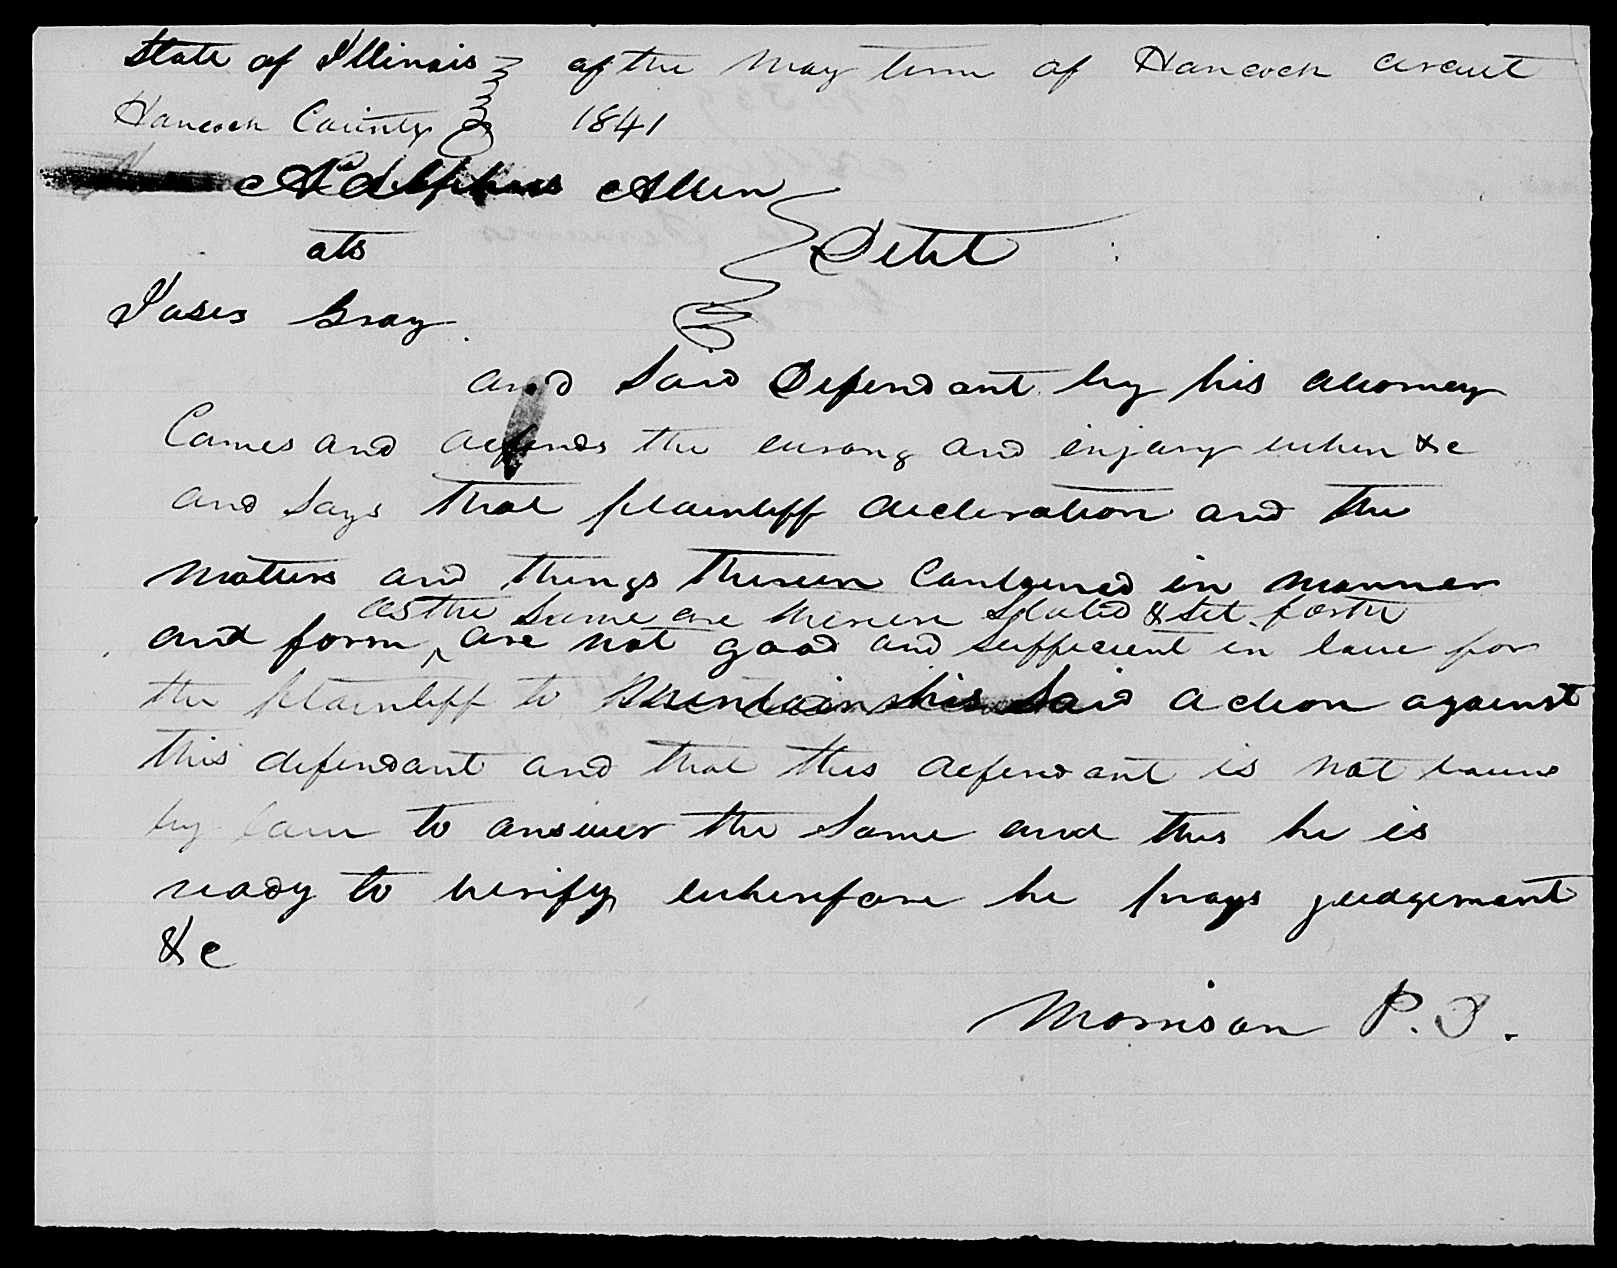 State of Illinois of the May term of Hancock circuit
Hancock County 1841
Adolphus Allen
ats Debt
Gray
and said Defendant by his attorney
Comes and defends the wrong and injury when &c
and says that plaintiff decleration and the
matters and things therein contained in manner
as the same are therein stated & set forth
and form ^ are not good and sufficient in law for
the plaintiff to maintain his said action against
this defendant and that this defendant is not bound
by law to answer the same and this he is
ready to verify wherefore he prays judgement
&c
Morrison P. D.